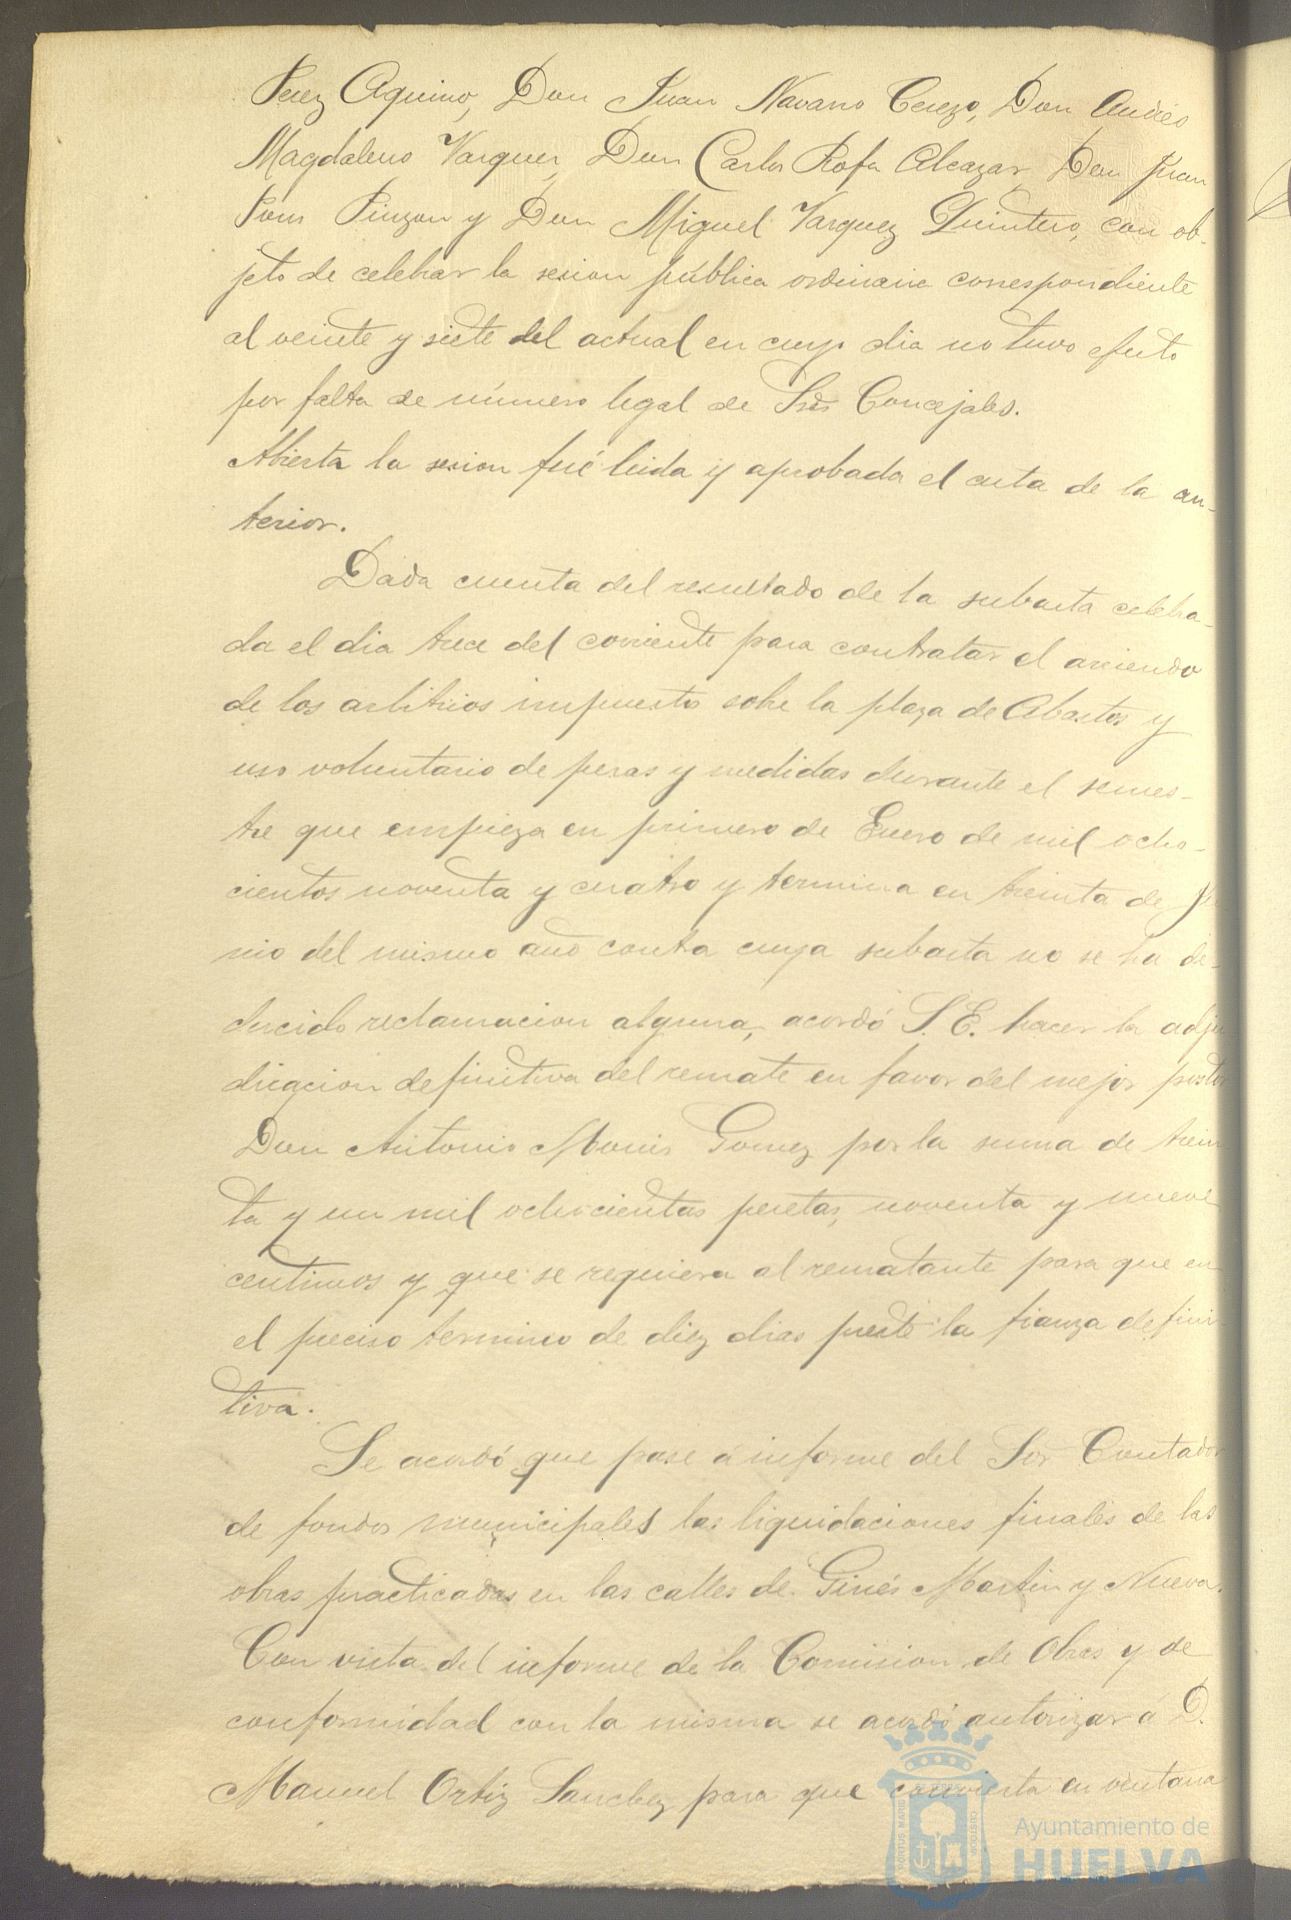 Perez Aquino, Don Juan Navarro Cerezo, Don Andrés
Magdaleno Vazquez, Don Carlos Rofa Alcazar, Don Juan
Pons Pinzon y Don Miguel Vazquez Quintero, con ob-
jeto de celebrar la sesion pública ordinaria correspondiente
al veinte y siete del actual en cuyo dia no tuvo efecto
por falta de número legal de Sres Concejales.
Abierta la sesion fué leida y aprobada el acta de la an-
terior.
Dada cuenta del resultado de la subasta celebra-
da el dia trece del corriente para contratar el arriendo
de los arbitrios impuestos sobre la plaza de Abastos y
uso voluntario de pesas y medidas durante el semes-
tre que empieza en primero de Enero de mil ocho-
cientos noventa y cuatro y termina en treinta de Ju
nio del mismo año contra cuya subasta no se ha de-
ducido reclamacion alguna, acordó S. E. hacer la adju
dicacion definitiva del remate en favor del mejor postor
Don Antonio Monis Gomez por la suma de trein
ta y un mil ochocientas pesetas, noventa y nueve
centimos y que se requiera al rematante para que en
el preciso termino de diez dias preste la fianza defini
tiva.
Se acordó que pase á informe del Sor Contador
de fondos municipales las liquidaciones finales de las
obras practicadas en las calles de Ginés Martin y Nueva.
Con vista del informe de la Comision de Obras y de
conformidad con la misma se acordó autorizar á D.
Manuel Ortiz Sanchez para que convierta en ventana
Ayuntamiento de
HUELVA